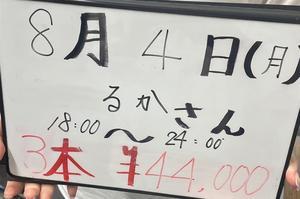 8月4日(月)
るかさん
18:00〜24:00
3本 ¥44,000